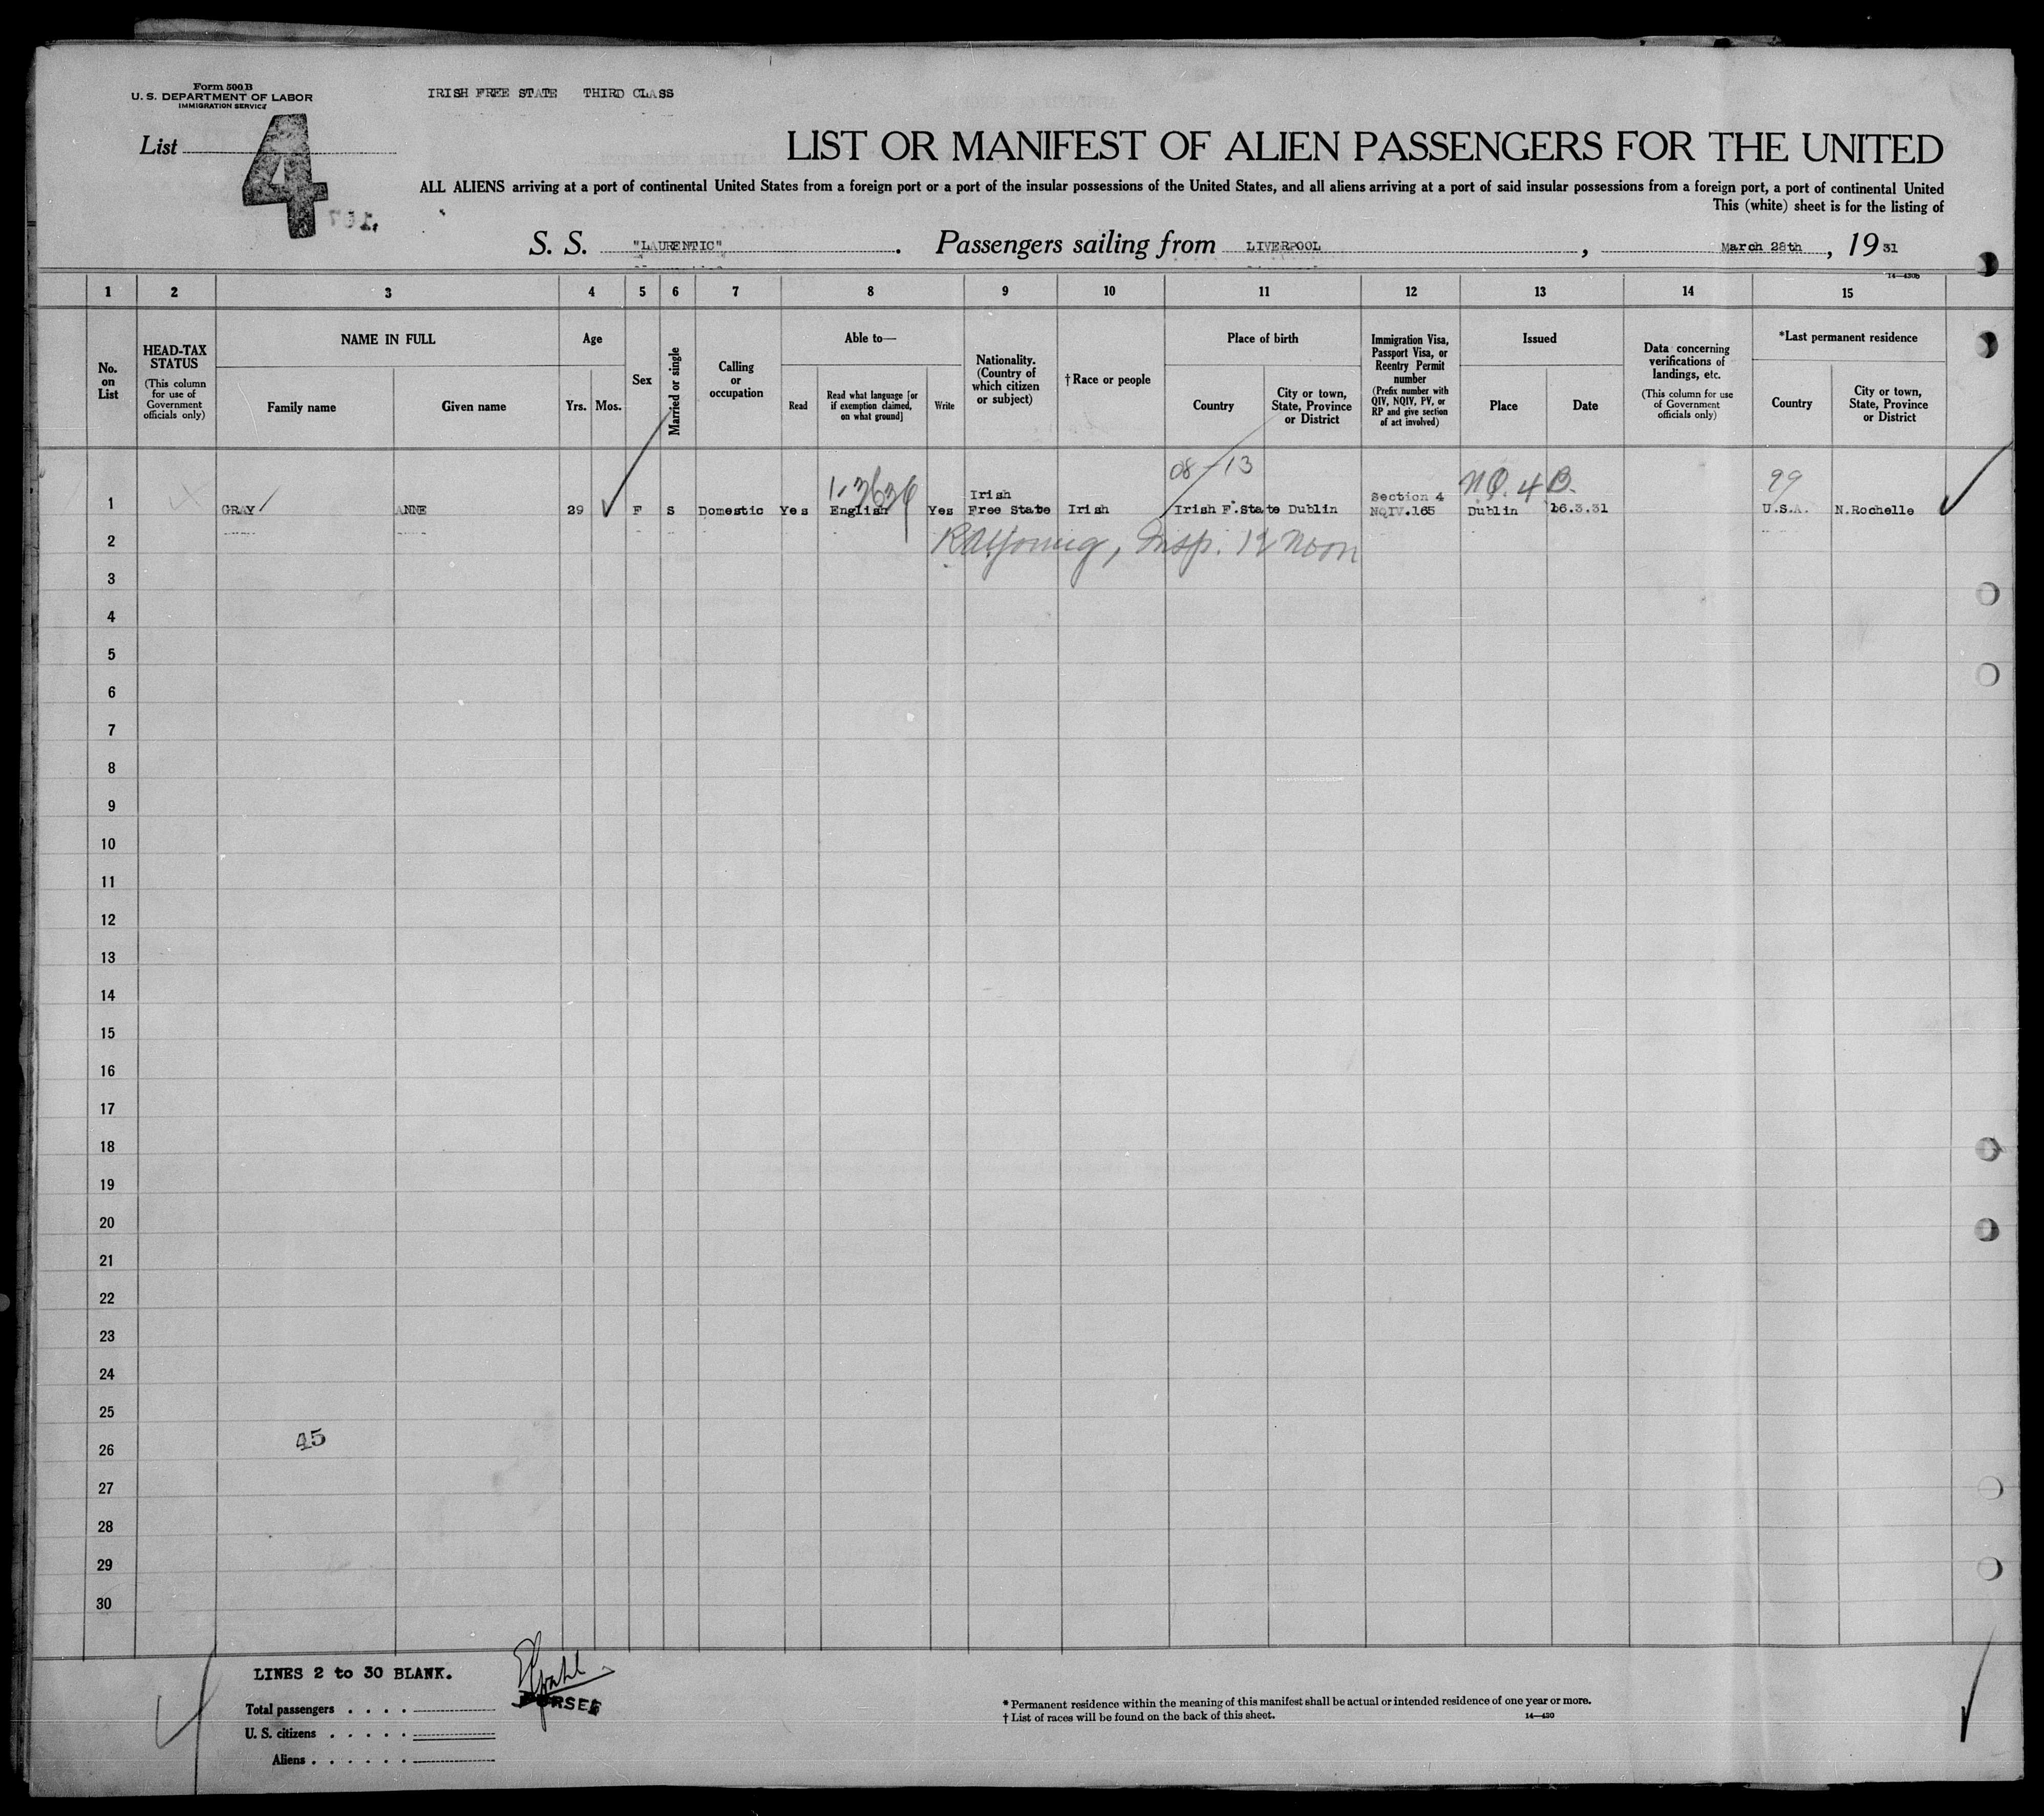 Form 500 B
U. S. DEPARTMENT OF LABOR
IMMIGRATION SERVICE
IRISH FREE STATE THIRD CLASS
List 4
LIST OR MANIFEST OF ALIEN PASSENGERS FOR THE UNITED
ALL ALIENS arriving at a port of continental United States from a foreign port or a port of the insular possessions of the United States, and all aliens arriving at a port of said insular possessions from a foreign port, a port of continental United
This (white) sheet is for the listing of
S. S. "LAURENTIC". Passengers sailing from LIVERPOOL, March 28th, 19 31
14—430b
1 2 3 4 5 6 7 8 9 10 11 12 13 14 15
No. on List
HEAD-TAX STATUS
(This column for use of Government officials only)
NAME IN FULL
Family name
Given name
Age
Yrs.
Mos.
Sex
Married or single
Calling or occupation
Able to—
Read
Read what language [or if exemption claimed, on what ground]
Write
Nationality. (Country of which citizen or subject)
†Race or people
Place of birth
Country
City or town, State, Province or District
Immigration Visa, Passport Visa, or Reentry Permit number
(Prefix number with QIV, NQIV, PV, or RP and give section of act involved)
Issued
Place
Date
Data concerning verifications of landings, etc.
(This column for use of Government officials only)
*Last permanent residence
Country
City or town, State, Province or District
08-13
N.Q. 4 B.
99
1 GRAY ANNE 29 F S Domestic Yes English Yes Irish Free State Irish Irish F.State Dublin Section 4 NQIV.165 Dublin 16.3.31 U.S.A. N.Rochelle
2
Young, Insp. 12 Noon
3
4
5
6
7
8
9
10
11
12
13
14
15
16
17
18
19
20
21
22
23
24
25
45
26
27
28
29
30
LINES 2 to 30 BLANK.
PURSER
Total passengers
U. S. citizens
Aliens
* Permanent residence within the meaning of this manifest shall be actual or intended residence of one year or more.
† List of races will be found on the back of this sheet.
14—430